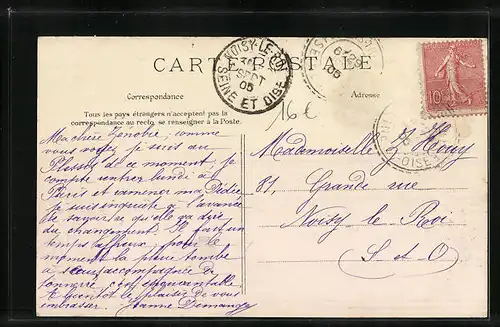 CARTE POSTALE
NOISY-LE-ROI
SEPT
05
SEINE ET OISE
10
16 €
Correspondance
Adresse
Tous les pays étrangers n'acceptent pas la
correspondance au recto, se renseigner à la Poste.
Ma chère Zenobie, comme
vous voyez je suis au
Plessis de ce moment; je
compte rentrer lundi à
Paris et ramener ma Didie
je suis inquiète à l'avance
de savoir ce qu'elle va dire
du changement. Il fait un
temps affreux; pour le
moment la pluie tombe
à
tonnerre, c'est
A bientôt le plaisir de vous
embrasser. Jeanne
Mademoiselle Z. Houy
81, Grande rue
Noisy le Roi
S et O